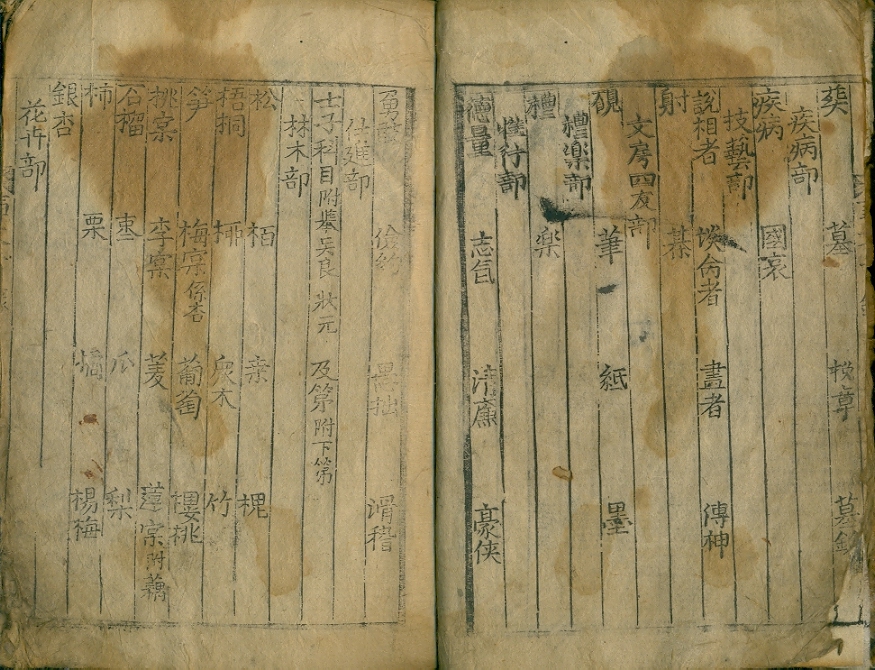 葬 墓
疾病部
疾病 國哀
技藝部
說相者 談命者 畫者 傳神
射 棊
文房四友部
硯 筆 紙 墨
禮樂部
禮 樂
性行部
德量 志氣 清廉 豪俠
勇敢 儉約 愚拙 滑稽
仕進部
士子科目附舉 狀元 及第附下第
林木部
松 栢 桑 槐
梧桐 柳 衆木 竹
笋 梅宲係杏 葡萄 櫻桃
桃宲 李宲 菱 蓮宲附藕
石榴 棗 瓜 梨
柿 栗 橘 楊梅
銀杏
花卉部